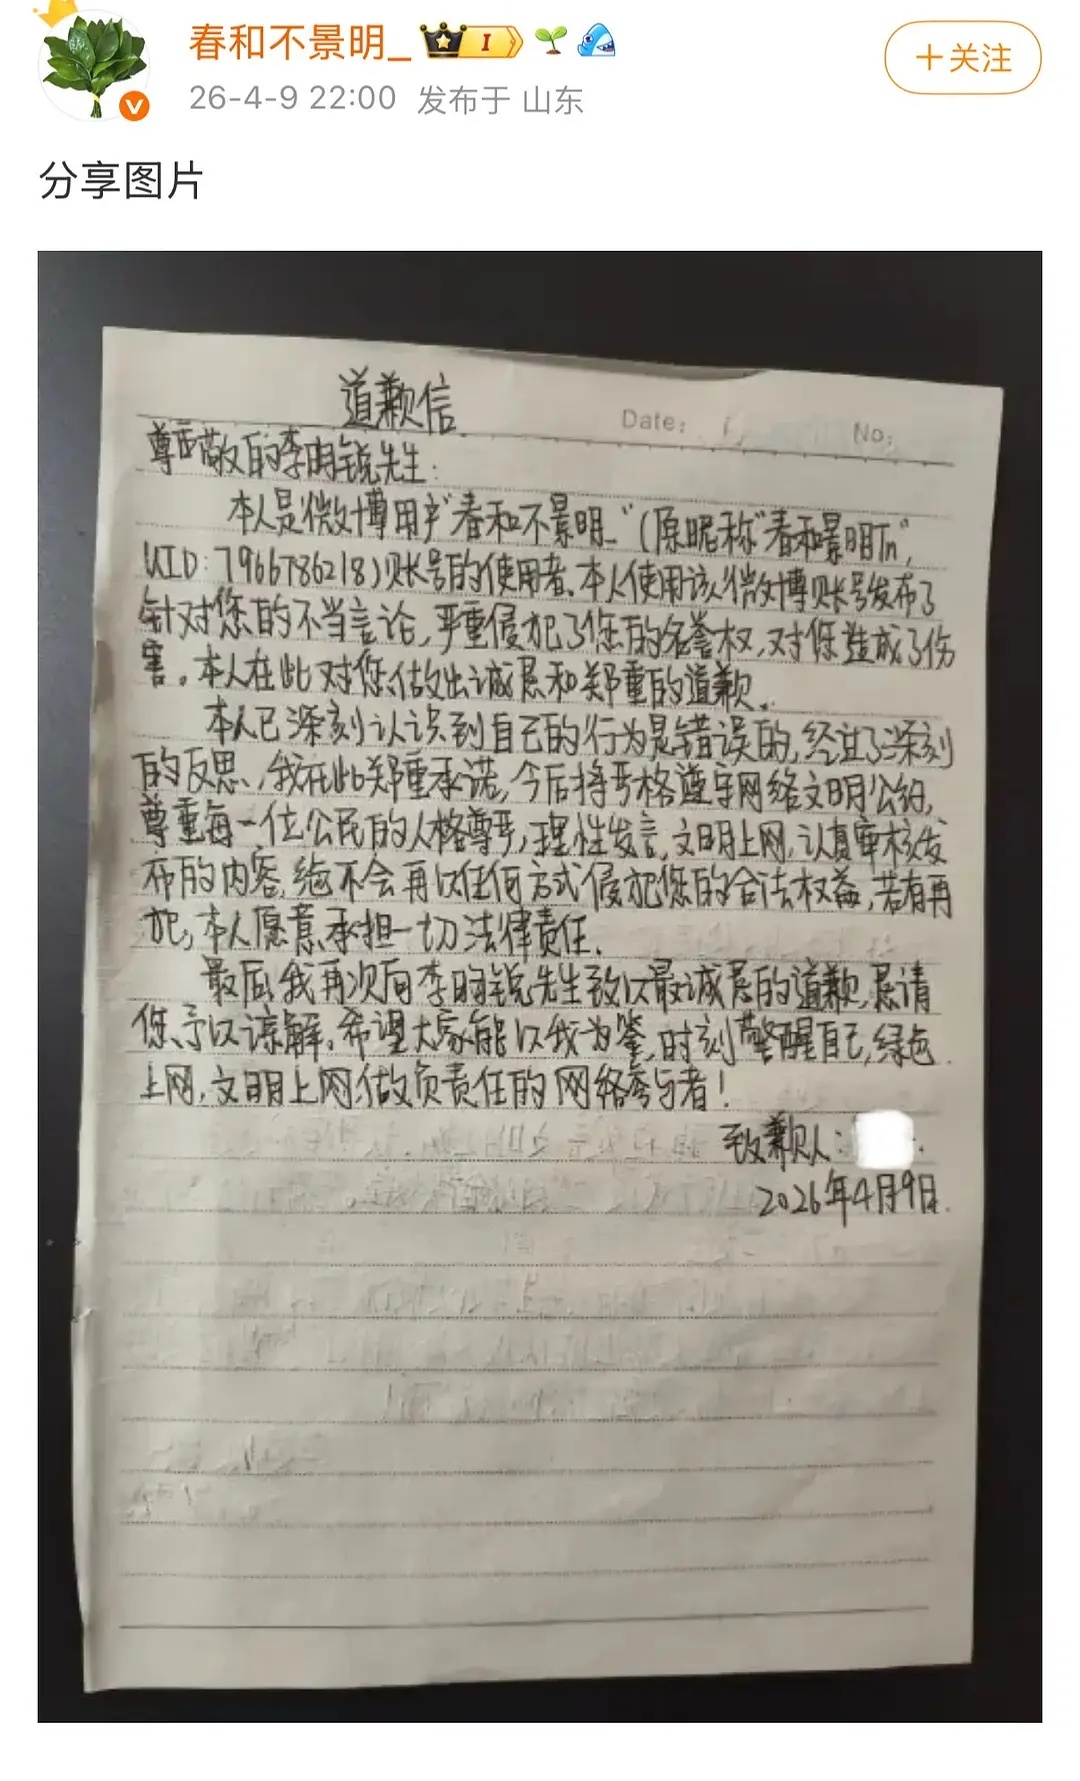 春和不景明_
I
26-4-9 22:00 发布于 山东
+关注
分享图片
Date:
No:
道歉信
尊敬的李昀锐先生:
本人是微博用户"春和不景明_"(原昵称"春和景明Tn",
UID:7966786218)账号的使用者。本人使用该微博账号发布了
针对您的不当言论,严重侵犯了您的名誉权,对您造成了伤
害。本人在此对您做出诚恳和郑重的道歉。
本人已深刻认识到自己的行为是错误的,经过了深刻
的反思,我在此郑重承诺,今后将严格遵守网络文明公约,
尊重每一位公民的人格尊严,理性发言,文明上网,认真审核发
布的内容,绝不会再以任何方式侵犯您的合法权益,若有再
犯,本人愿意承担一切法律责任.
最后,我再次向李昀锐先生致以最诚恳的道歉,恳请
您予以谅解。希望大家能以我为鉴,时刻警醒自己,绿色
上网,文明上网,做负责任的网络参与者!
致歉人:
2026年4月9日.